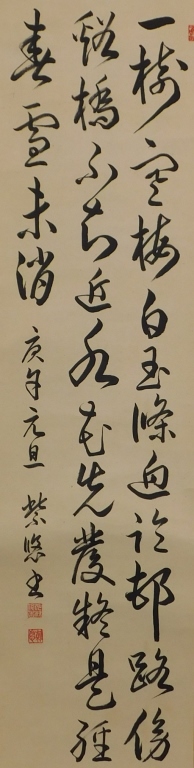 一樹寒梅白玉條迥臨邨路傍
谿橋不知近水花先發疑是經
春雪未消 庚午元旦 紫悠書